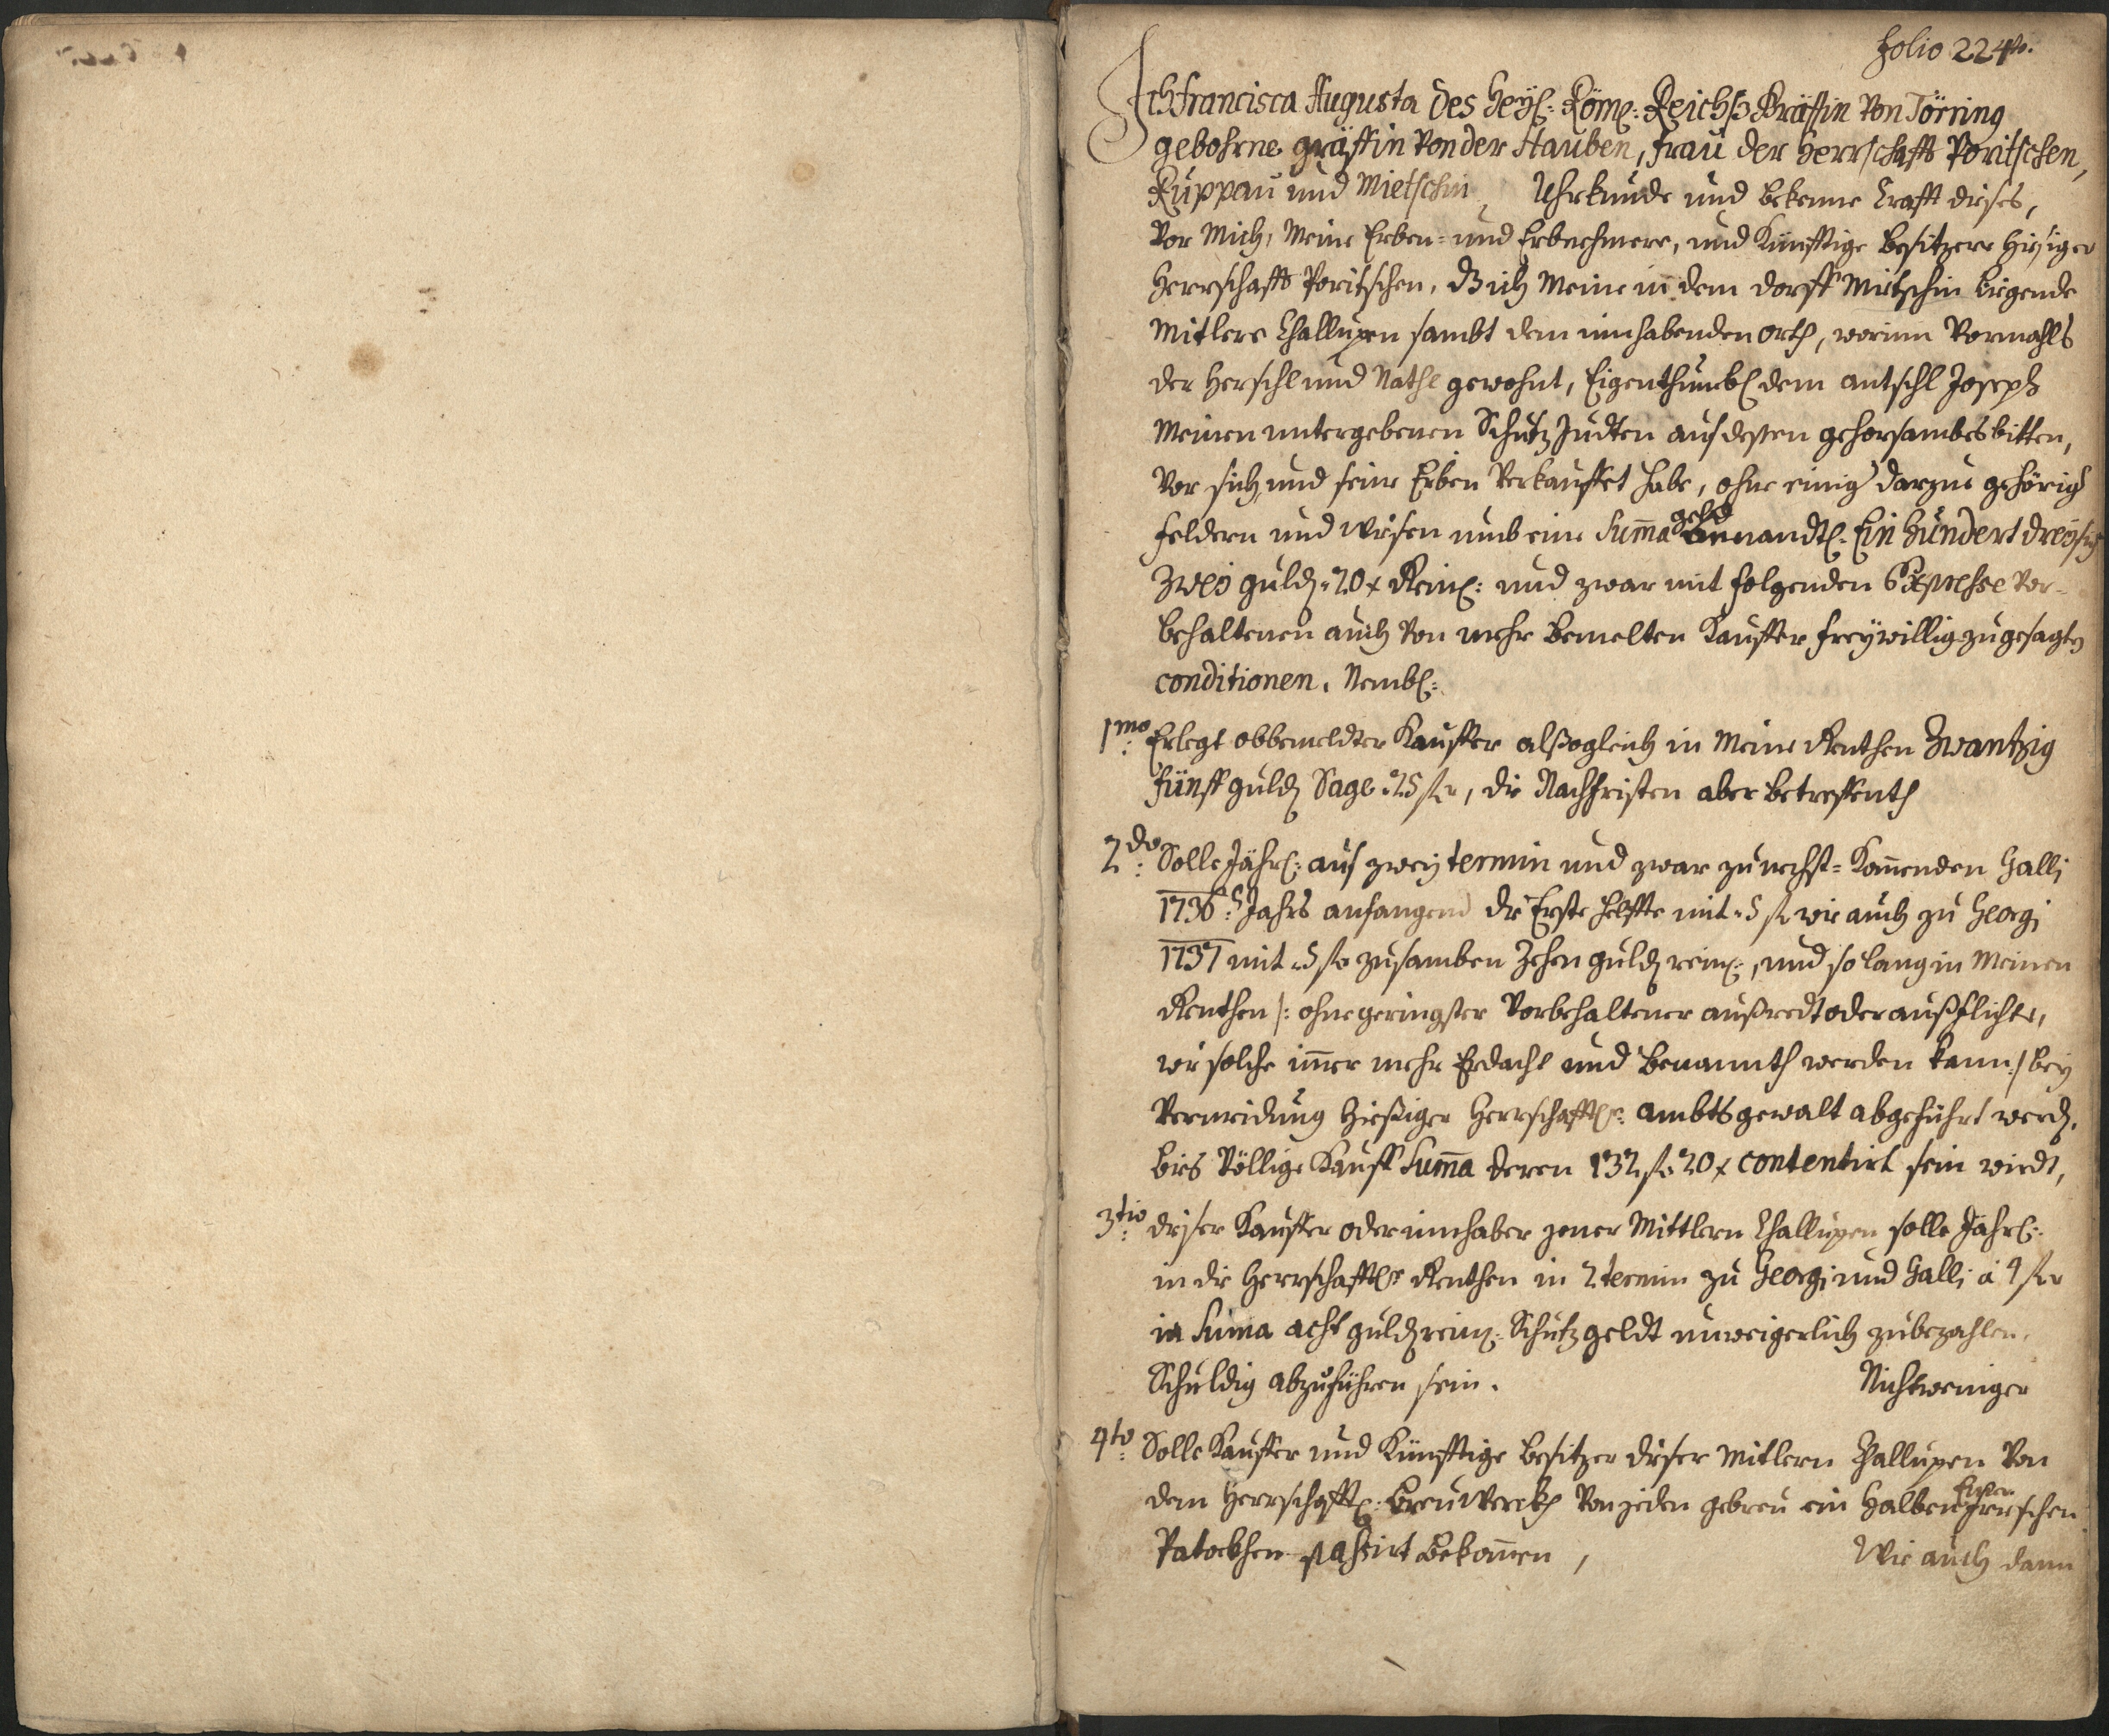 Folio 224to.
Ich Francisca Augusta des Heyl: Röm: Reichß Gräffin Von Törring
gebohrne gräffin Von der Hauben, Frau der Herrschafft Poritschen,
Ruppau und Mietschin, Uhrkunde und bekenne Krafft dieses,
Vor Mich, Meine Erben- und Erbnehmere, und Künfftige besitzere hiesiger
Herrschafft Poritschen, daß ich Meine in dem dorff Mietschin liegende
Mitlere Challupen sambt dem innhabenden orth, worinn Vormahls
der Herschl und Nathl gewohnt, Eigenthumbl dem antschl Joseph
Meinen untergebenen Schutz Judten auf dessen gehorsambes bitten,
Vor sich, und seine Erben Verkauffet habe, ohne einig darzue gehörig
feldern und wiesen umb eine Suma geld benandtl. Ein Hundert dreysig
Zwey guld. 20 x Reinl: und zwar mit folgenden Expresse vor-
behaltenen auch Von mehr bemelten Kauffer freywillig zugesagten
conditionen. Nembl:
1mo: Erlegt obbemeldter Kauffer alßogleich in Meine Renthen Zwantzig
fünff guld Sage 25 fl, die Nachfristen aber betreffenth
2do: Solle Jährl: auf zwey termin und zwar zu nechst-Komenden Galli
1736. Jahrs anfangend die Erste helffte mit 5 fl wie auch zu Georgi
1737 mit 5 fl zusamben Zehen guld reinl:, und so lang in Meinen
Renthen /: ohne geringster Vorbehaltener außredt oder außflichte,
wie solche imer mehr Erdacht und benannth werden kann :/ bey
Vermeidung hießiger Herrschafftl: ambtsgewalt abgeführt werd,
biß Völlige Kauff Suma deren 132 fl 20 x contentirt sein wirdt,
3tio: dieser Kauffer oder innhaber jener Mittlern Challupen solle Jährl:
in die Herrschafftl: Renthen in 2 termin zu Georgi und Galli à 4 fl
in Suma acht guld reinl: Schutzgeldt unweigerlich zubezahlen,
Schuldig abzuführen sein. Nicht weniger
4to: Solle Kauffer und Künfftige besitzer dieser Mitlern Challupen Von
dem Herrschafftl: breu Werckh Von jeden gebreu ein Halben
Patockhen passirt bekomen, Wie auch dann